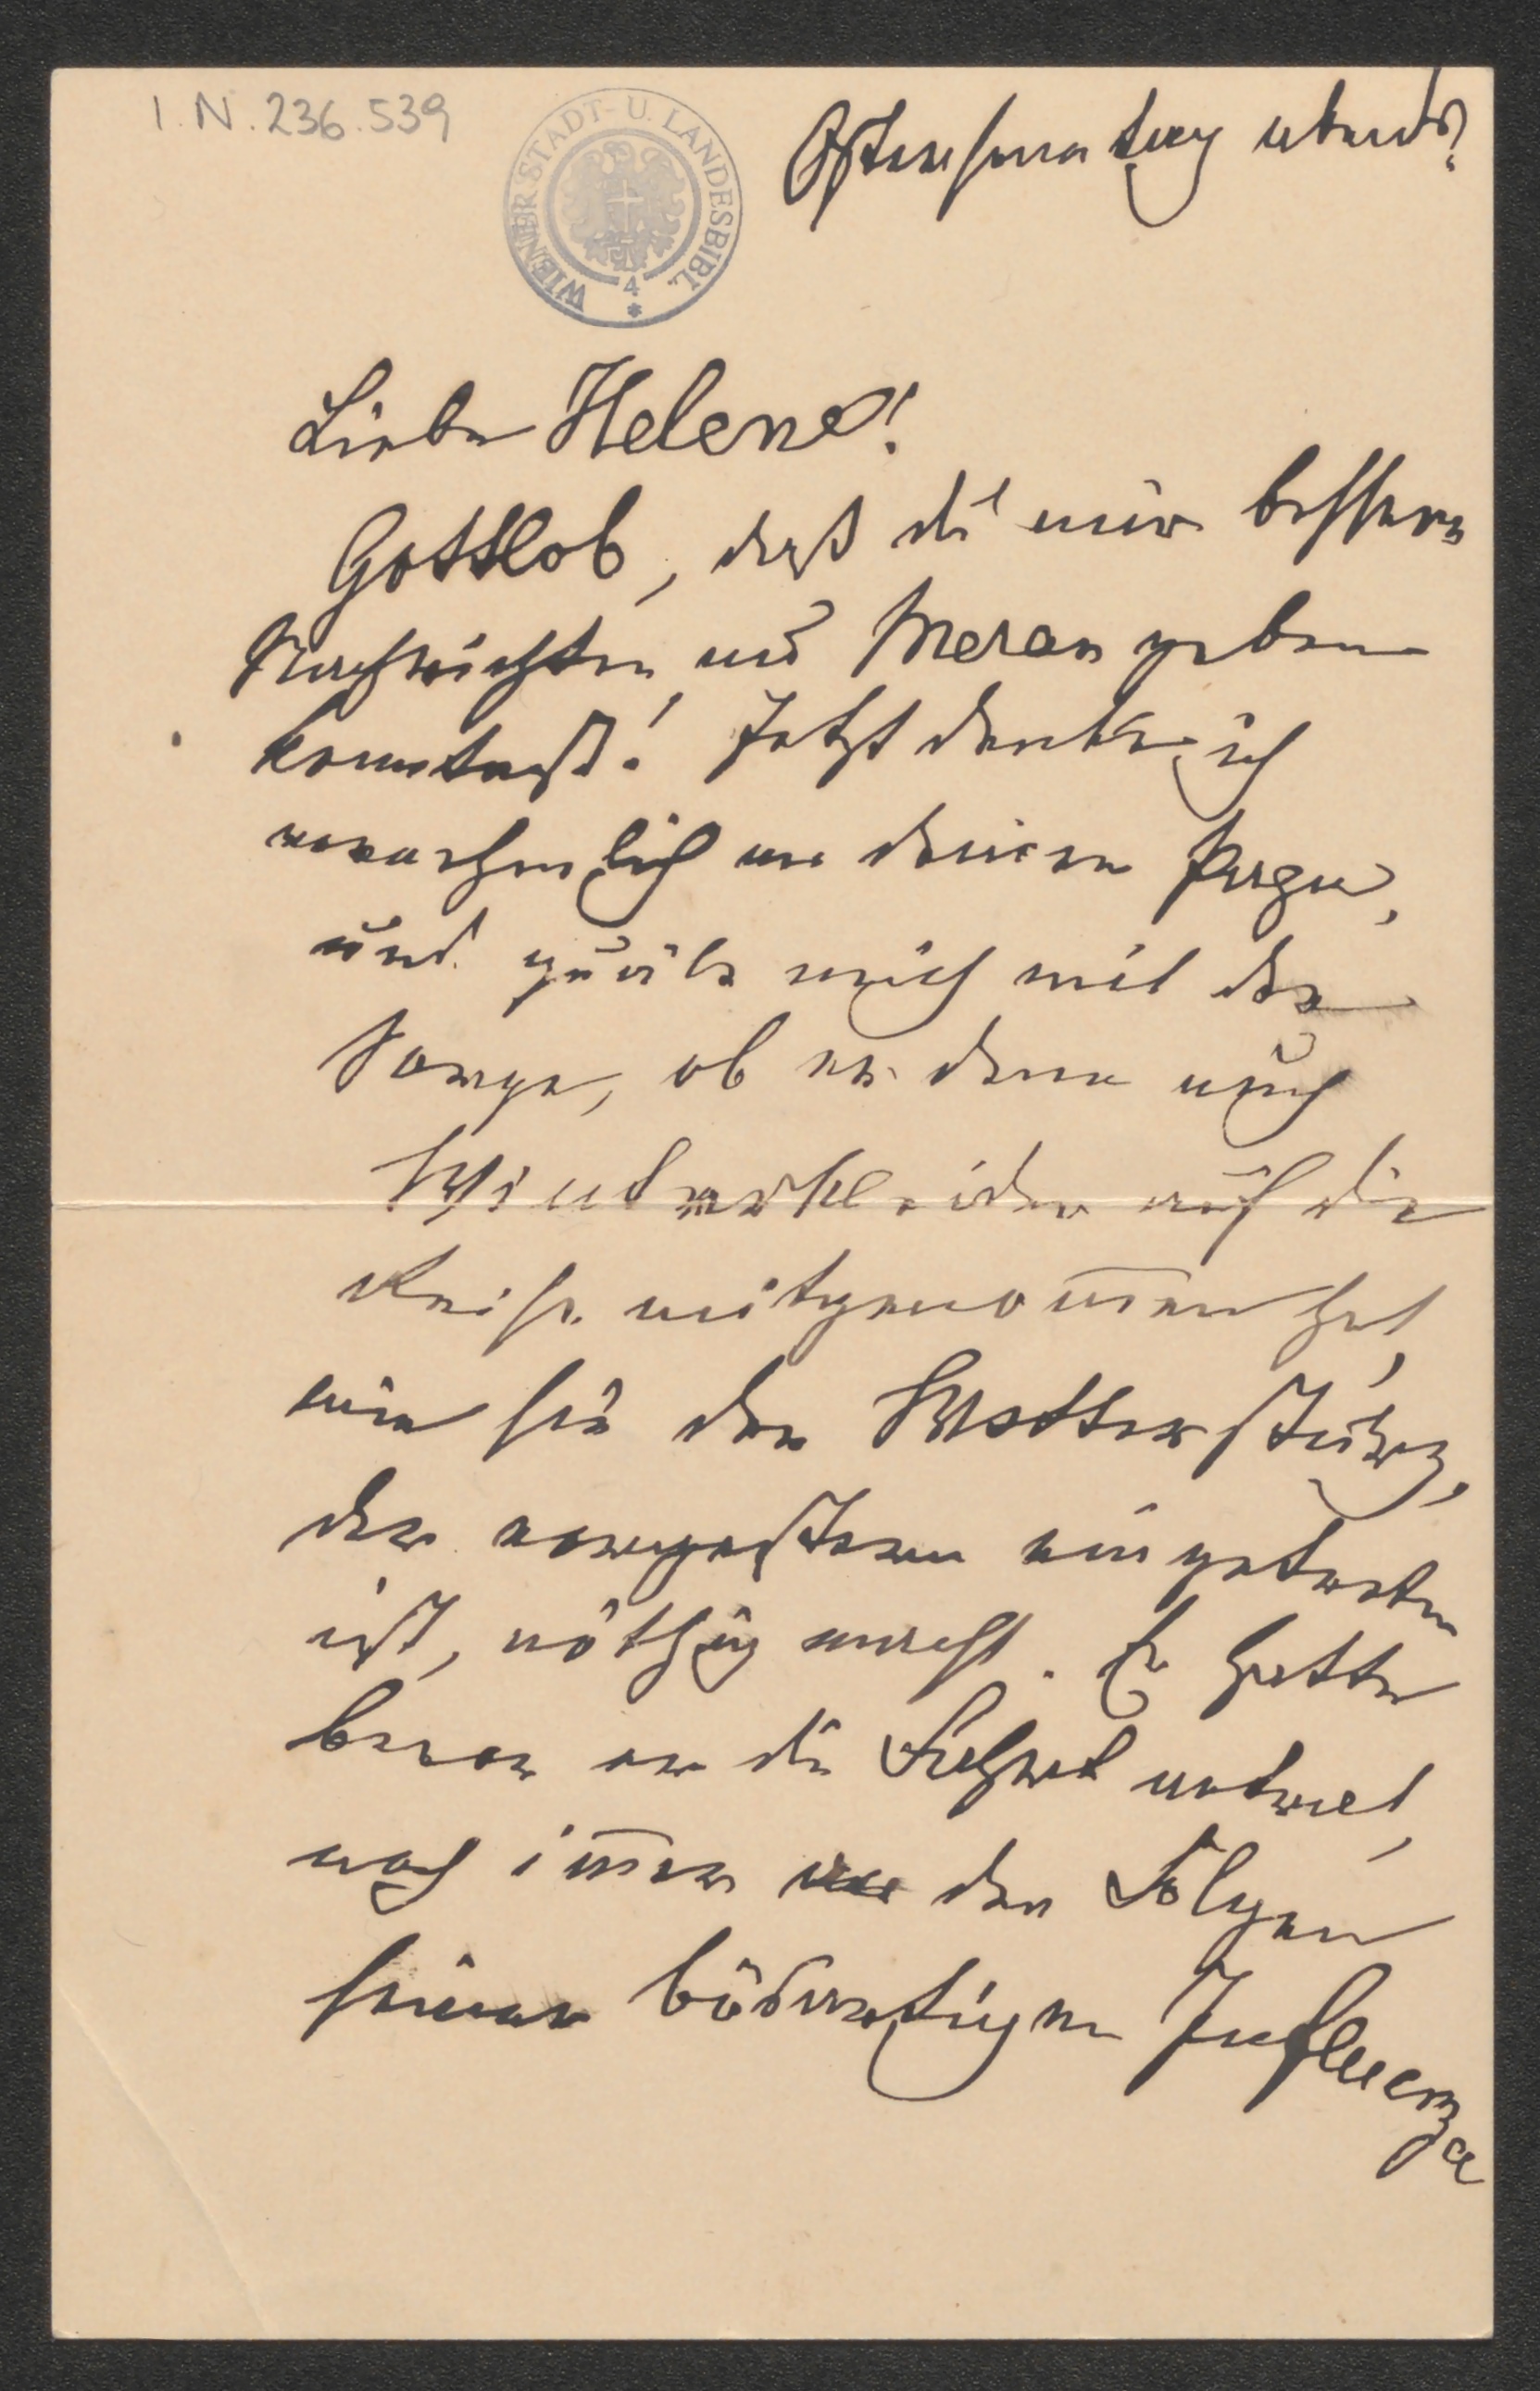 I.N. 236.539
WIENER STADT- U. LANDESBIBL.
4
Ostersonntag abends
Liebe Helene!
Gottlob, daß du mir bessere
Nachrichten aus Meran geben
konntest! Jetzt denke ich
vornehmlich an deinen Papa,
und quäle mich mit der
Sorge, ob er denn auch
Winterkleider auf die
Reise mitgenommen hat,
wie sie der Wettersturz,
der vorgestern eingetreten
ist, nöthig macht. Er hatte
bevor er die Fahrt antrat,
noch immer den Folgen
seiner bösartigen Influenza